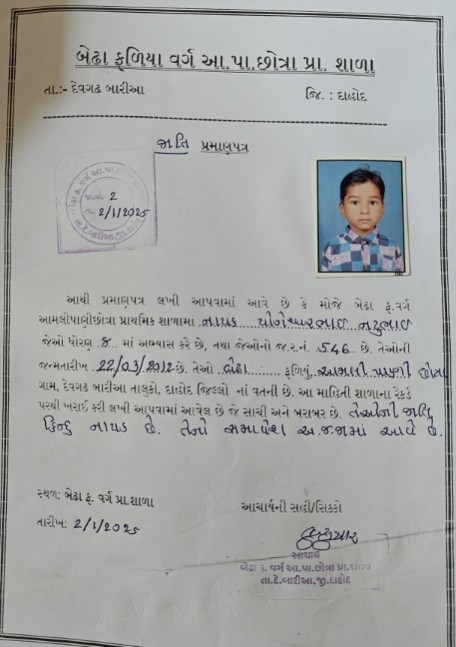 બેઢા ફળિયા વર્ગ આ.પા.છોત્રા પ્રા. શાળા
તા.:- દેવગઢ બારીઆ જિ. : દાહોદ
જાતિ પ્રમાણપત્ર
જા.નં. 2
તા. 2/1/2025
તા.દે.બારીઆ,જી.દાહોદ
આથી પ્રમાણપત્ર લખી આપવામાં આવે છે કે મોજે બેઢા ફ.વર્ગ
આમલીપાણીછોત્રા પ્રાથમિક શાળામાં નાયક યોગેશ્વરભાઈ નટુભાઈ
જેઓ ધોરણ 8 માં અભ્યાસ કરે છે, તથા જેઓનો જ.ર.નં. 546 છે. તેઓની
જન્મતારીખ 22/03/2012 છે. તેઓ બેઢા ફળિયું, આમલી પાણી છોત્રા
ગામ, દેવગઢ બારીઆ તાલુકો, દાહોદ જિલ્લો નાં વતની છે. આ માહિતી શાળાના રેકર્ડ
પરથી ખરાઈ કરી લખી આપવામાં આવેલ છે જે સાચી અને બરાબર છે. તેઓની જાતિ
હિન્દુ નાયક છે. તેનો સમાવેશ અ.જ.જામાં આવે છે.
સ્થળ: બેઢા ફ. વર્ગ પ્રા.શાળા
આચાર્યની સહી/સિક્કો
તારીખ: 2/1/2025
આચાર્ય
બેઢા ફ. વર્ગ આ.પા.છોત્રા પ્રા. શાળા
તા.દે.બારીઆ,જી.દાહોદ